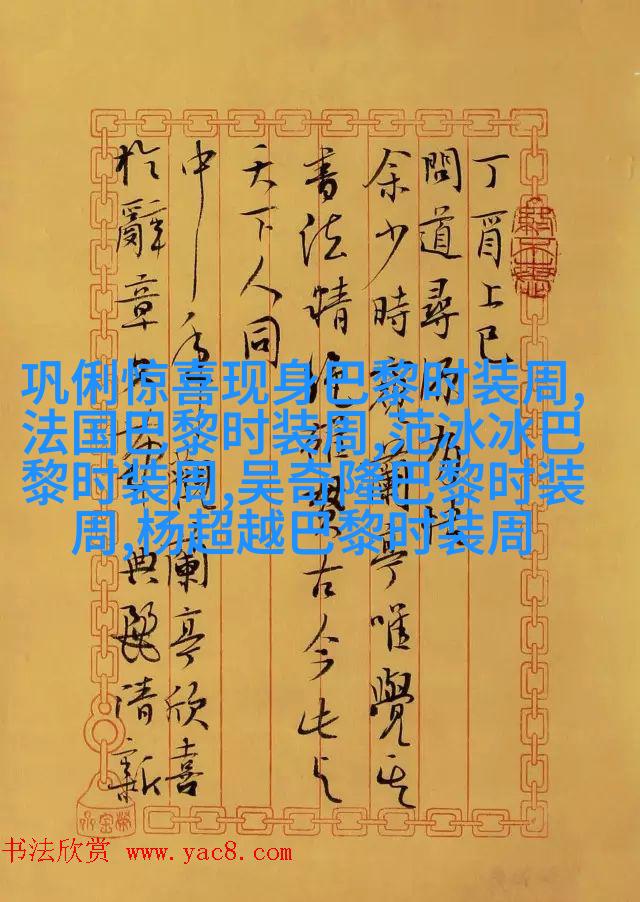 丁酉上巳
問道尋源有
余少時蘭亭唯覺其
書法精絕古今
天下人同
中觀蘭亭欣喜
於辭章典麗清新
巩俐惊喜现身巴黎时装周,
法国巴黎时装周,范冰冰巴
黎时装周,吴奇隆巴黎时装
周,杨超越巴黎时装周
书法欣赏 www.yac8.com